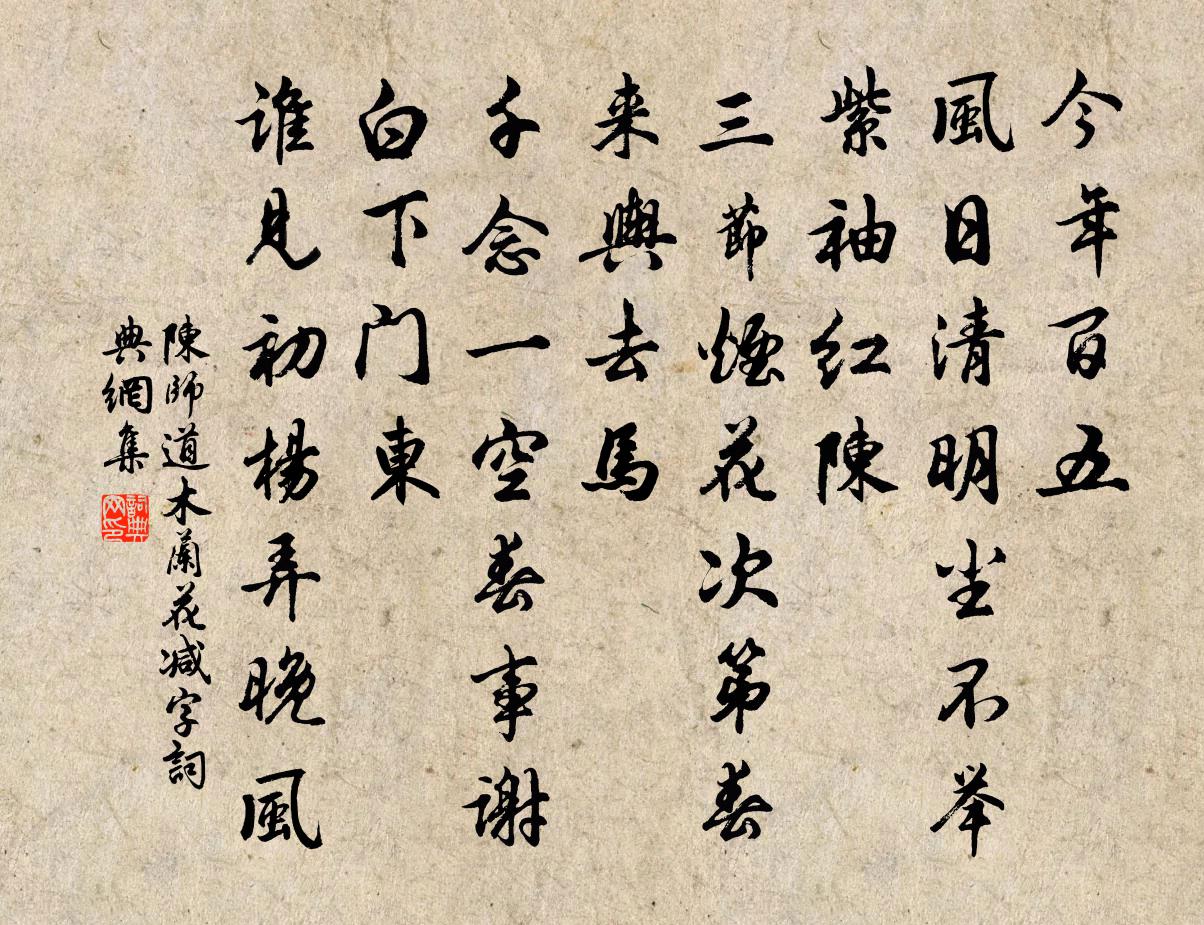 今年百五
風日清明尘不举
紫袖红陳
三節煙花次第春
来與去馬
千念一空春事謝
白下门東
谁見初楊弄晚風
陳師道木蘭花减字詞
典網集
詞典网印